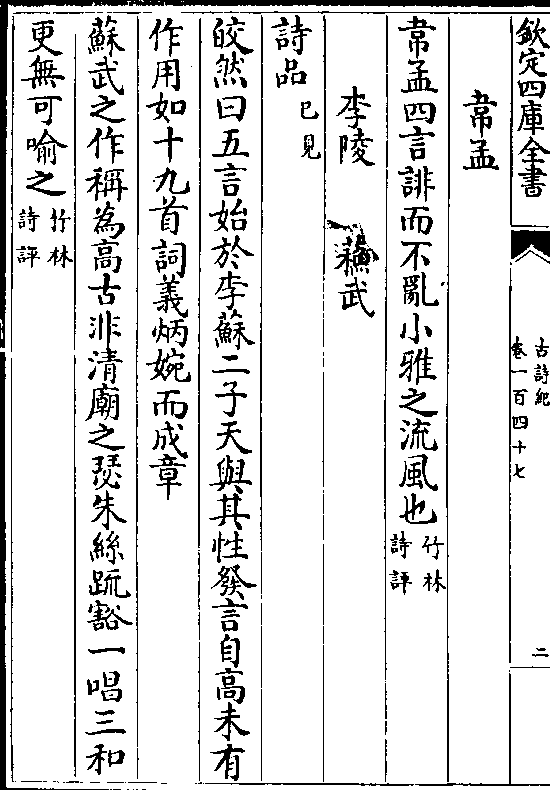 欽定四庫全書
古詩紀
卷一百四十七
二
韋孟
韋孟四言誹而不亂小雅之流風也竹林詩評
李陵 蘇武
詩品已見
皎然曰五言始於李蘇二子天與其性發言自高未有
作用如十九首詞義炳婉而成章
蘇武之作稱為高古非清廟之瑟朱絲疏豁一唱三和
更無可喻之竹林詩評